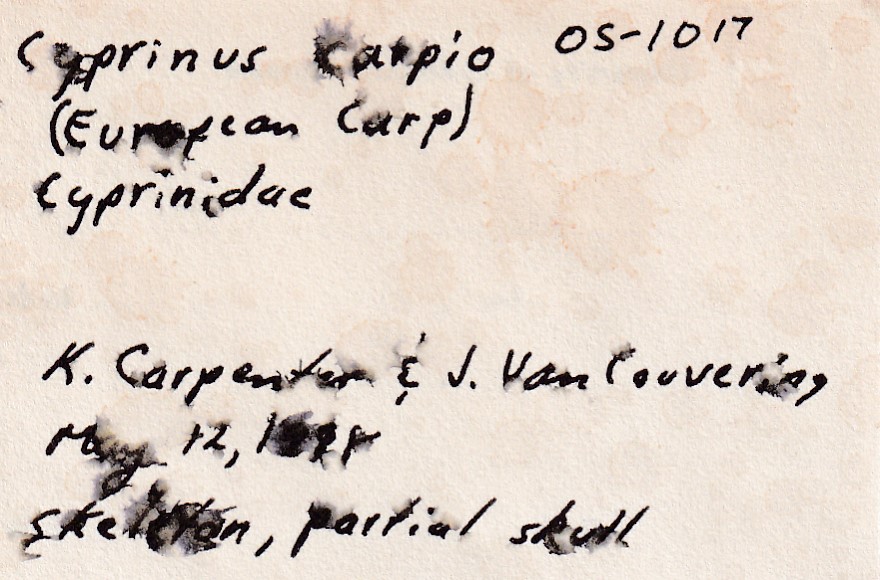 Cyprinus Carpio OS-1017
(European Carp)
Cyprinidae
K. Carpenter & J. Van Couvering
May 12,
Skeleton, partial skull